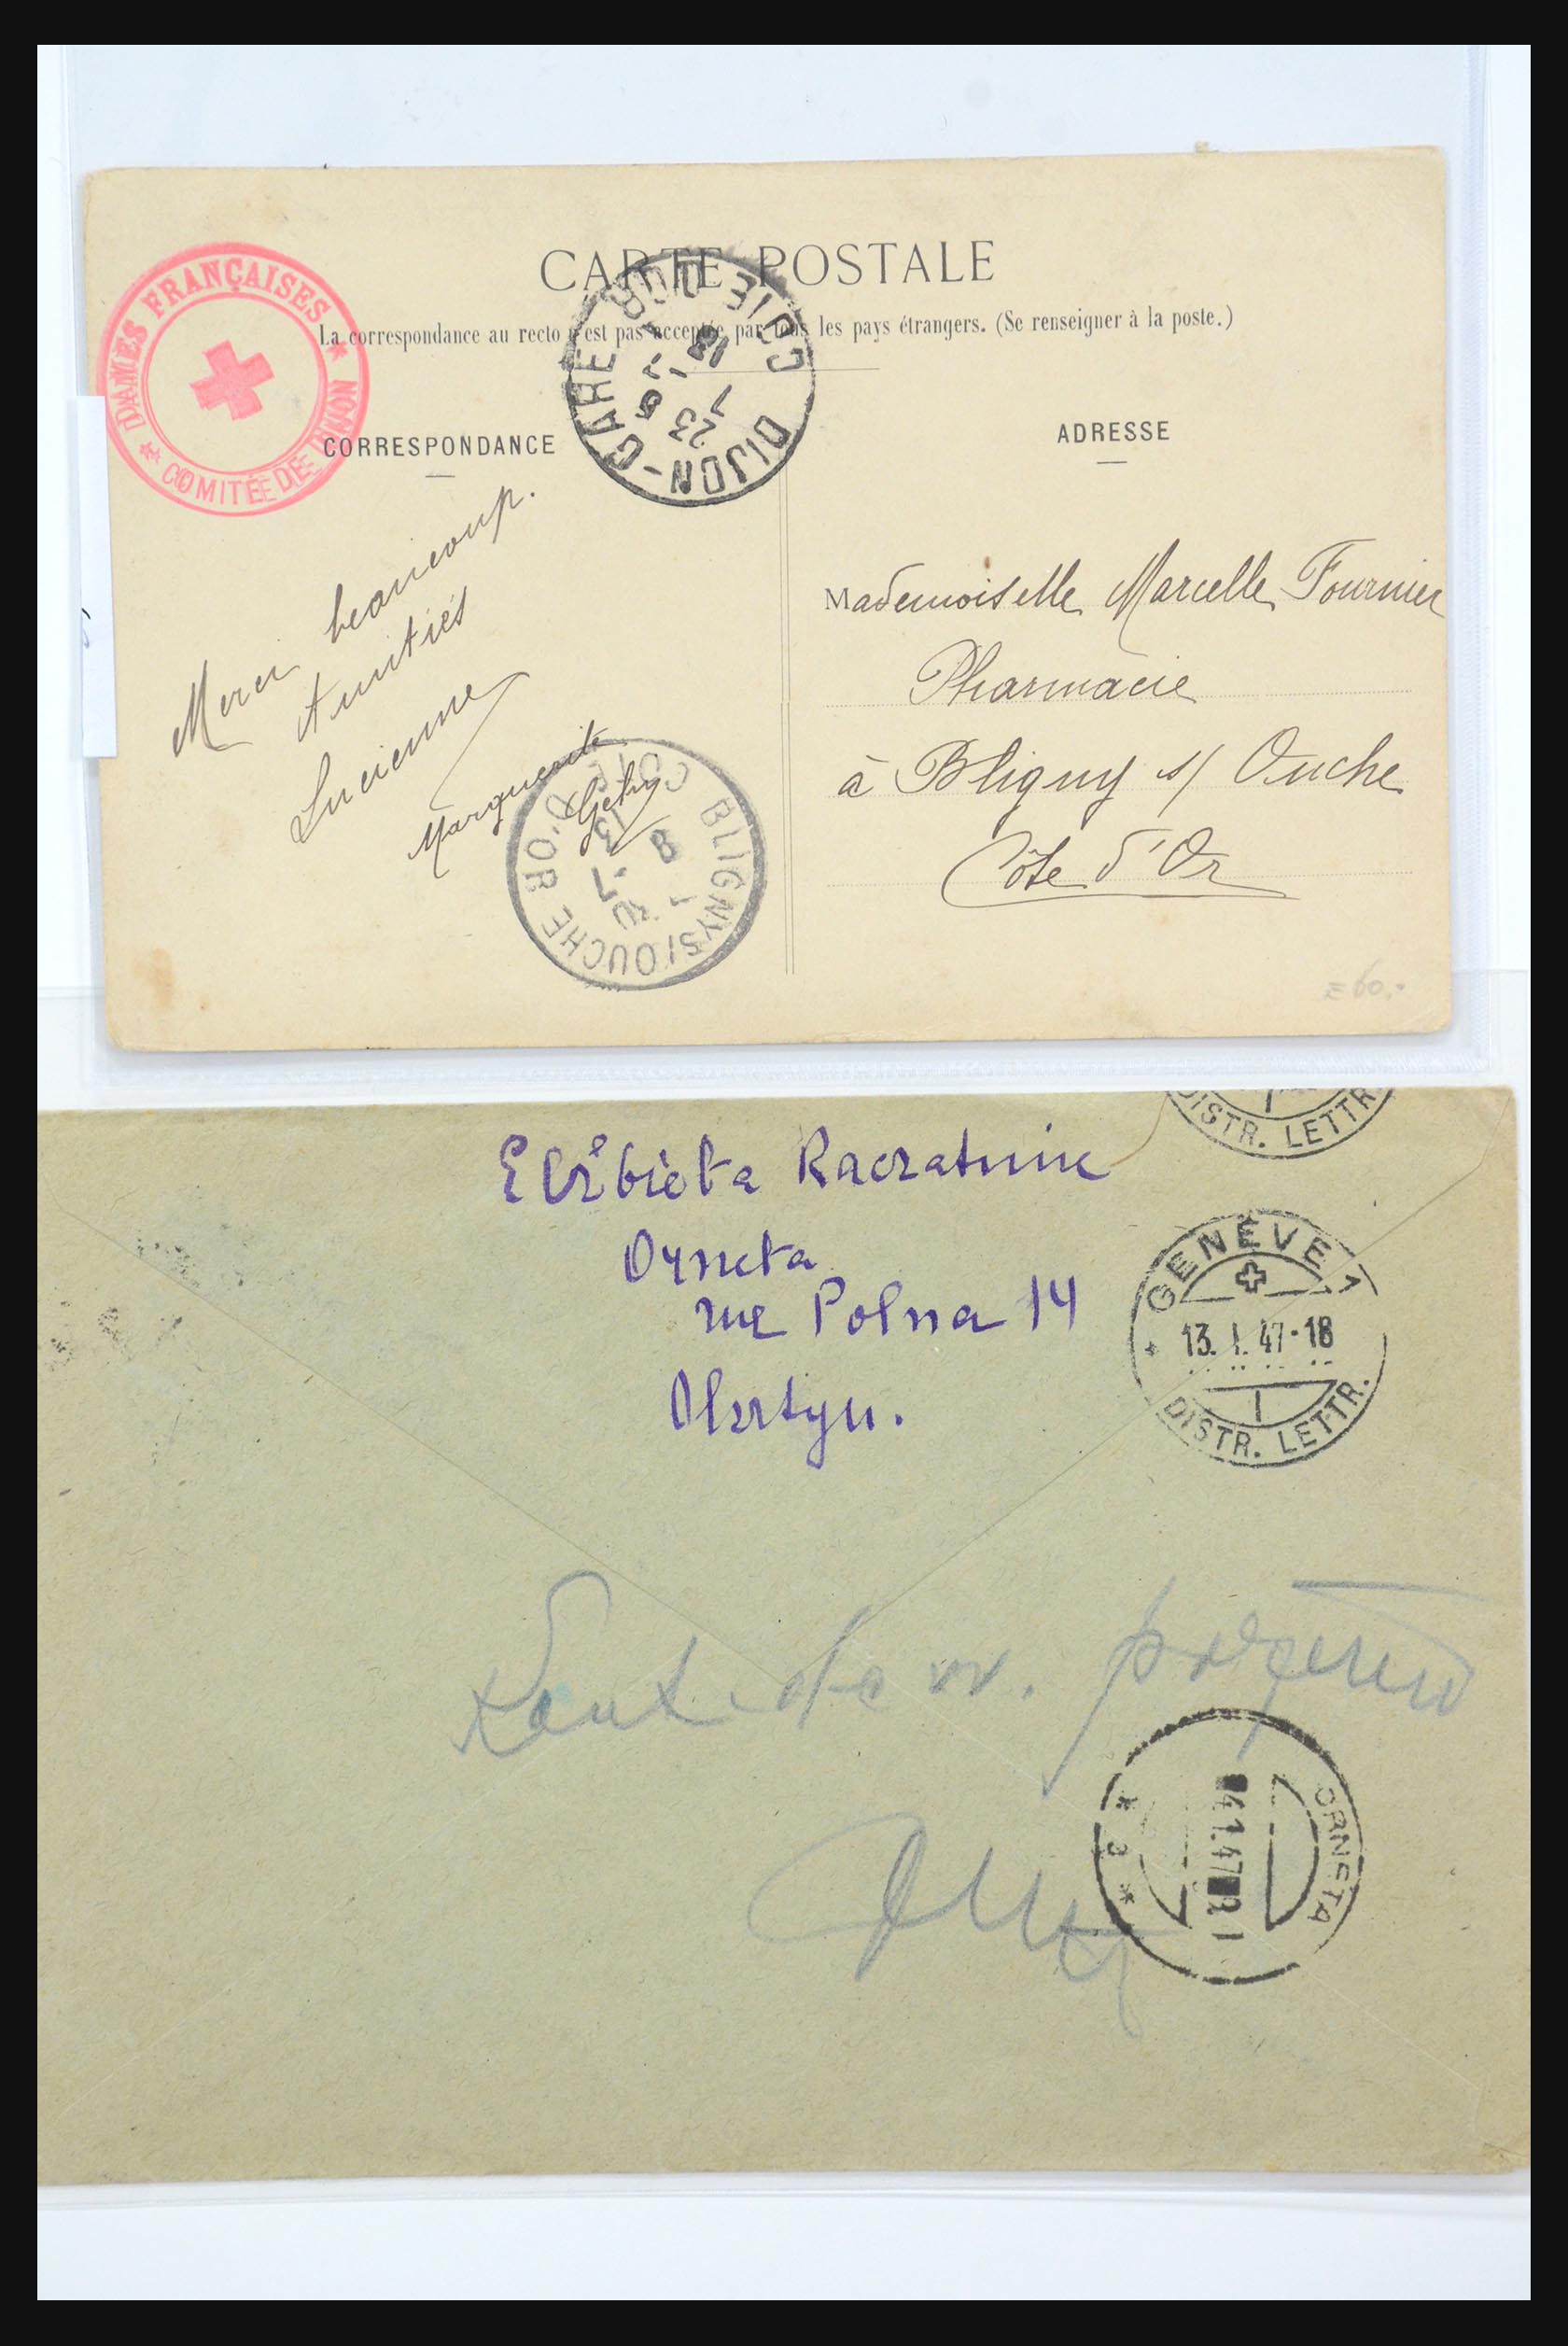 CARTE POSTALE
La correspondance au recto n'est pas acceptée par tous les pays étrangers. (Se renseigner à la poste.)
* DAMES FRANÇAISES *
COMITÉ DE DIJON
DIJON-GARE
CÔTE D'OR
18
23
CORRESPONDANCE
ADRESSE
Merci beaucoup.
Amitiés
Lucienne
Marguerite
Mademoiselle Marcelle Fournier
Pharmacie
à Bligny s/ Ouche
Côte d'Or
BLIGNY S/ OUCHE
CÔTE D'OR
60.-
DISTR. LETTR.
Elżbieta
Orneta
rue Polna 14
Olsztyn.
GENÈVE 1
13. I. 47-18
DISTR. LETTR.
ORNETA